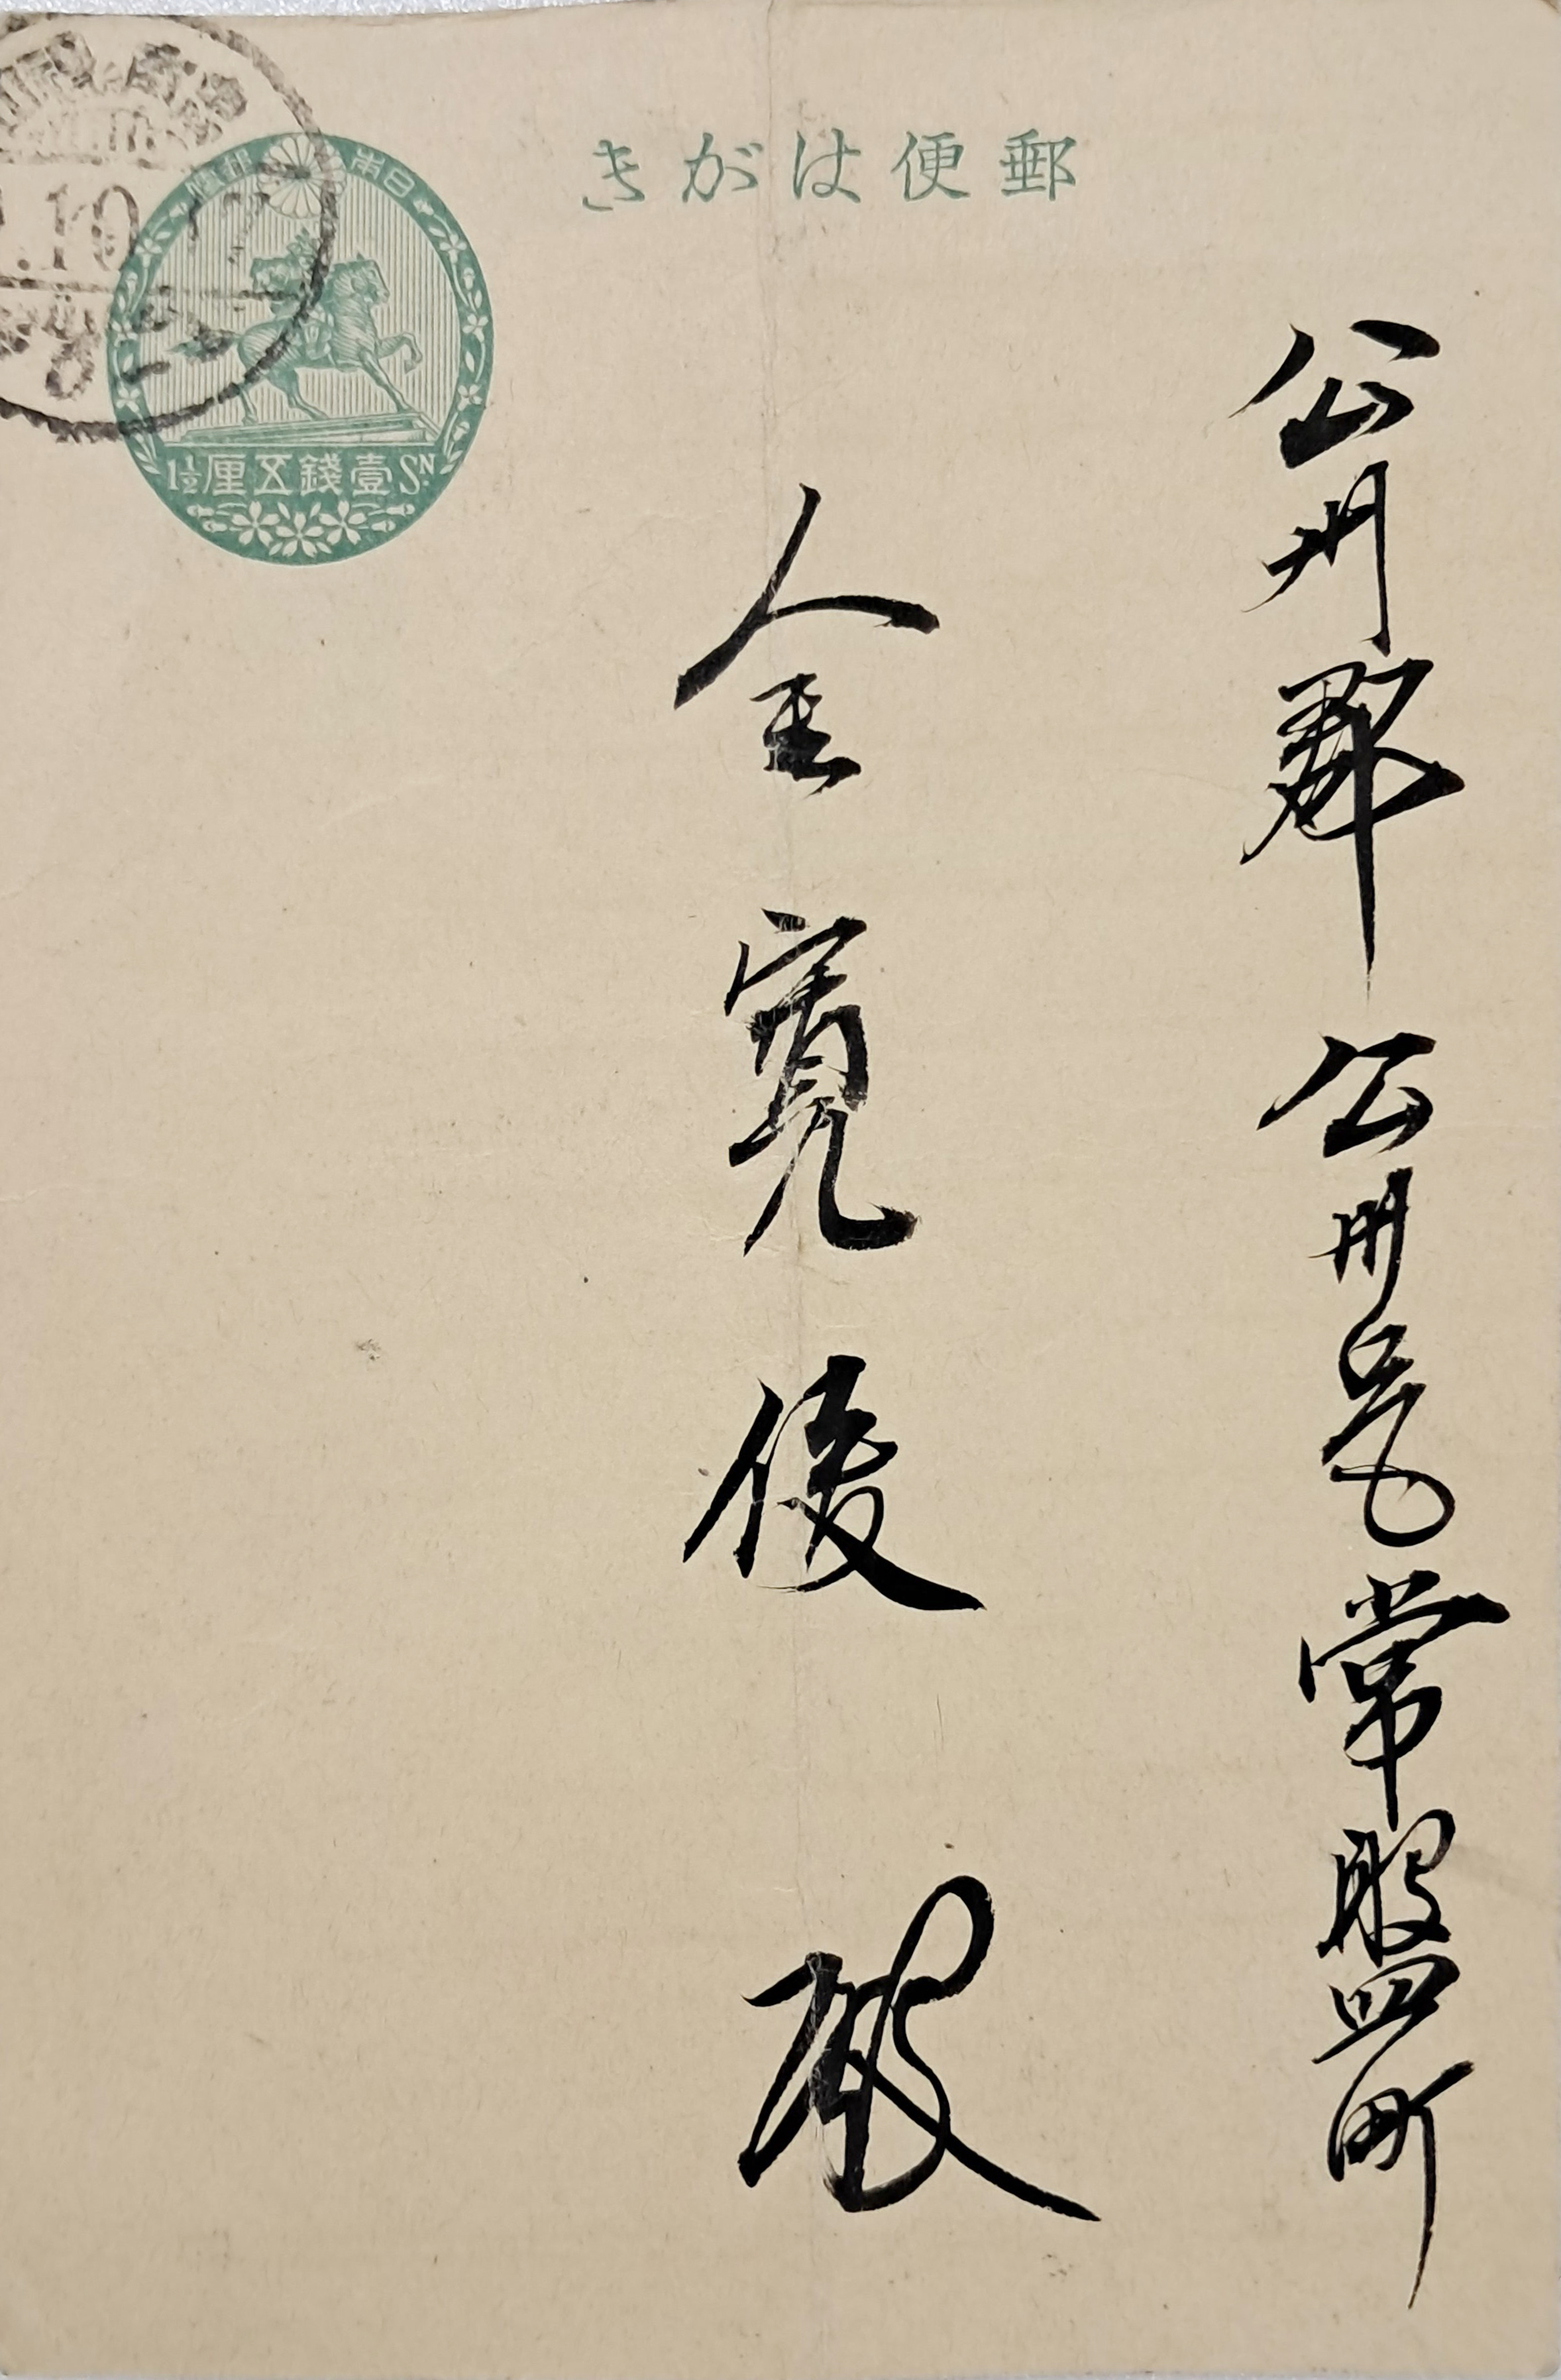 郵便はがき
日本郵便
1½ 壹錢五厘 Sɴ.
.10.
公州郡公州邑常盤町
金寬俊殿